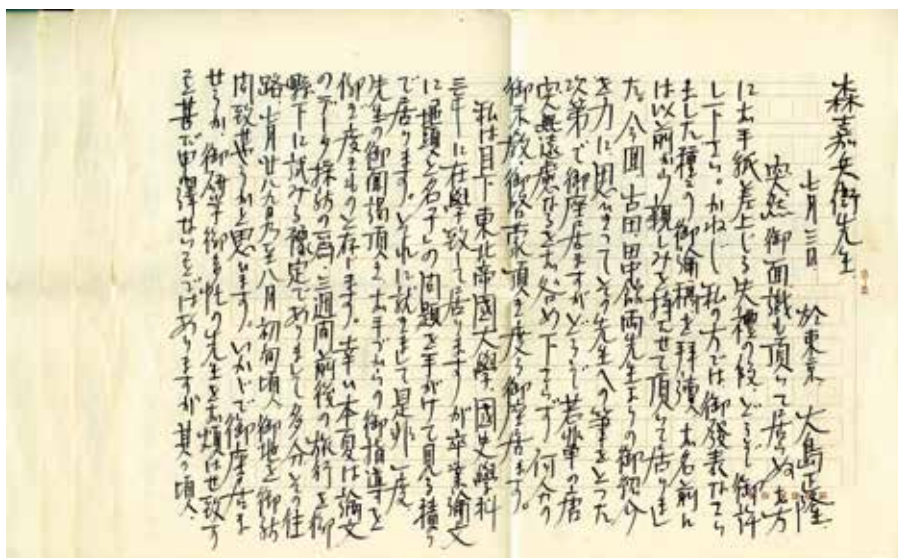 森嘉兵衛先生
七月三日 於東京 大島正隆
突然御面識も頂いて居らぬ貴方
にお手紙差上げる失禮の段、どうぞ御許
し下さい。かねがね私の方では御發表なさい
ました種々の御論稿を拝讀、お名前に
は以前から親しみを持たせて頂いて居りまし
た。今回古田 両先生よりの御
を力に思ひきつてその先生への筆をとつた
次第で御座居ますがどうぞ若輩の唐
突無遠慮なるをお咎め下さらず何分の
御示教御 頂き度う御座居ます。
私は目下東北帝國大學國史學科
三年に在學致して居りますが卒業論文
に「地頭と名子」の問題を手がけて見る積り
で居ります。それに就きまして是非一度
先生の御面謁頂き、お手づからの御指導を
仰ぎ度きものと存じます。幸い本夏は論文
のデータ採訪の為、三週間前後の旅行を御
縣下に試みる豫定でありまして多分その往
路七月廿八九日乃至八月初旬頃、御地を御訪
問致せようかと思います。いかゞで御座居ま
せうか御研学御多忙の先生をお煩はせ致す
こと甚だ申譯ないことではありますが其の頃